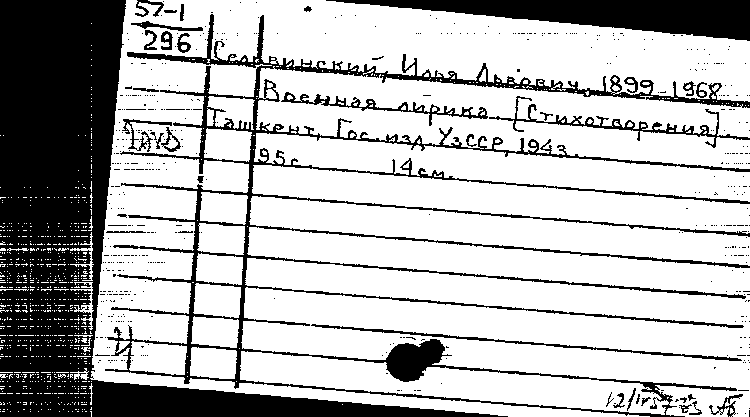 57-1
296
Сельвинский, Илья Львович, 1899-1968
Военная лирика. [Стихотворения]
Ташкент, Гос. изд. УзССР, 1943.
95с. 14см.